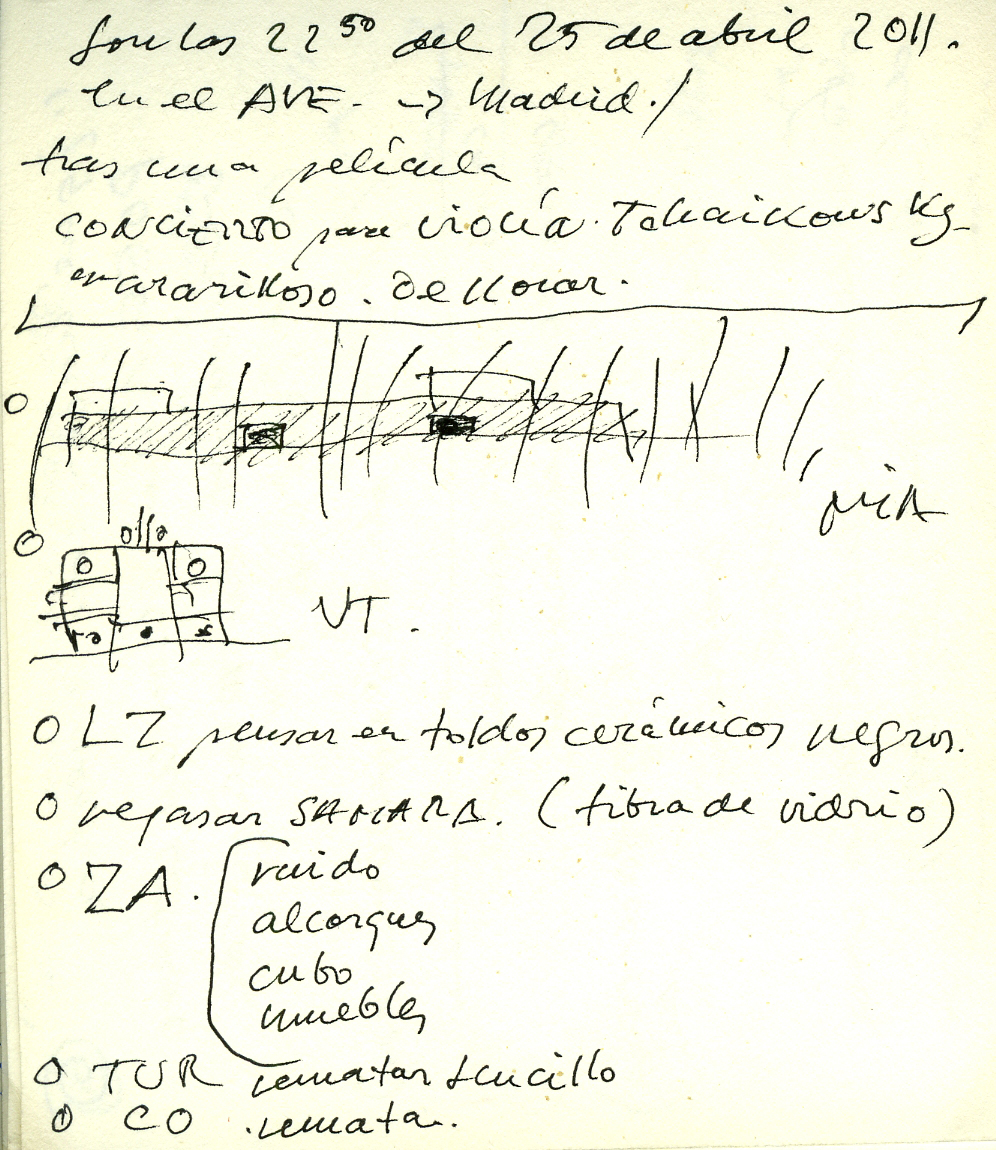 Son las 22 50 del 25 de abril 2011.
En el AVE. -> Madrid./
tras una película
CONCIERTO para violín. Tchaikowsky
mararilloso. De llorar.
MIA
VT.
O LZ pensar en toldos cerámicos negros.
O repasar SAHARA. (fibra de vidrio)
O ZA.
ruido
alcorques
cubo
muebles
O TUR rematar sencillo
O CO rematar.